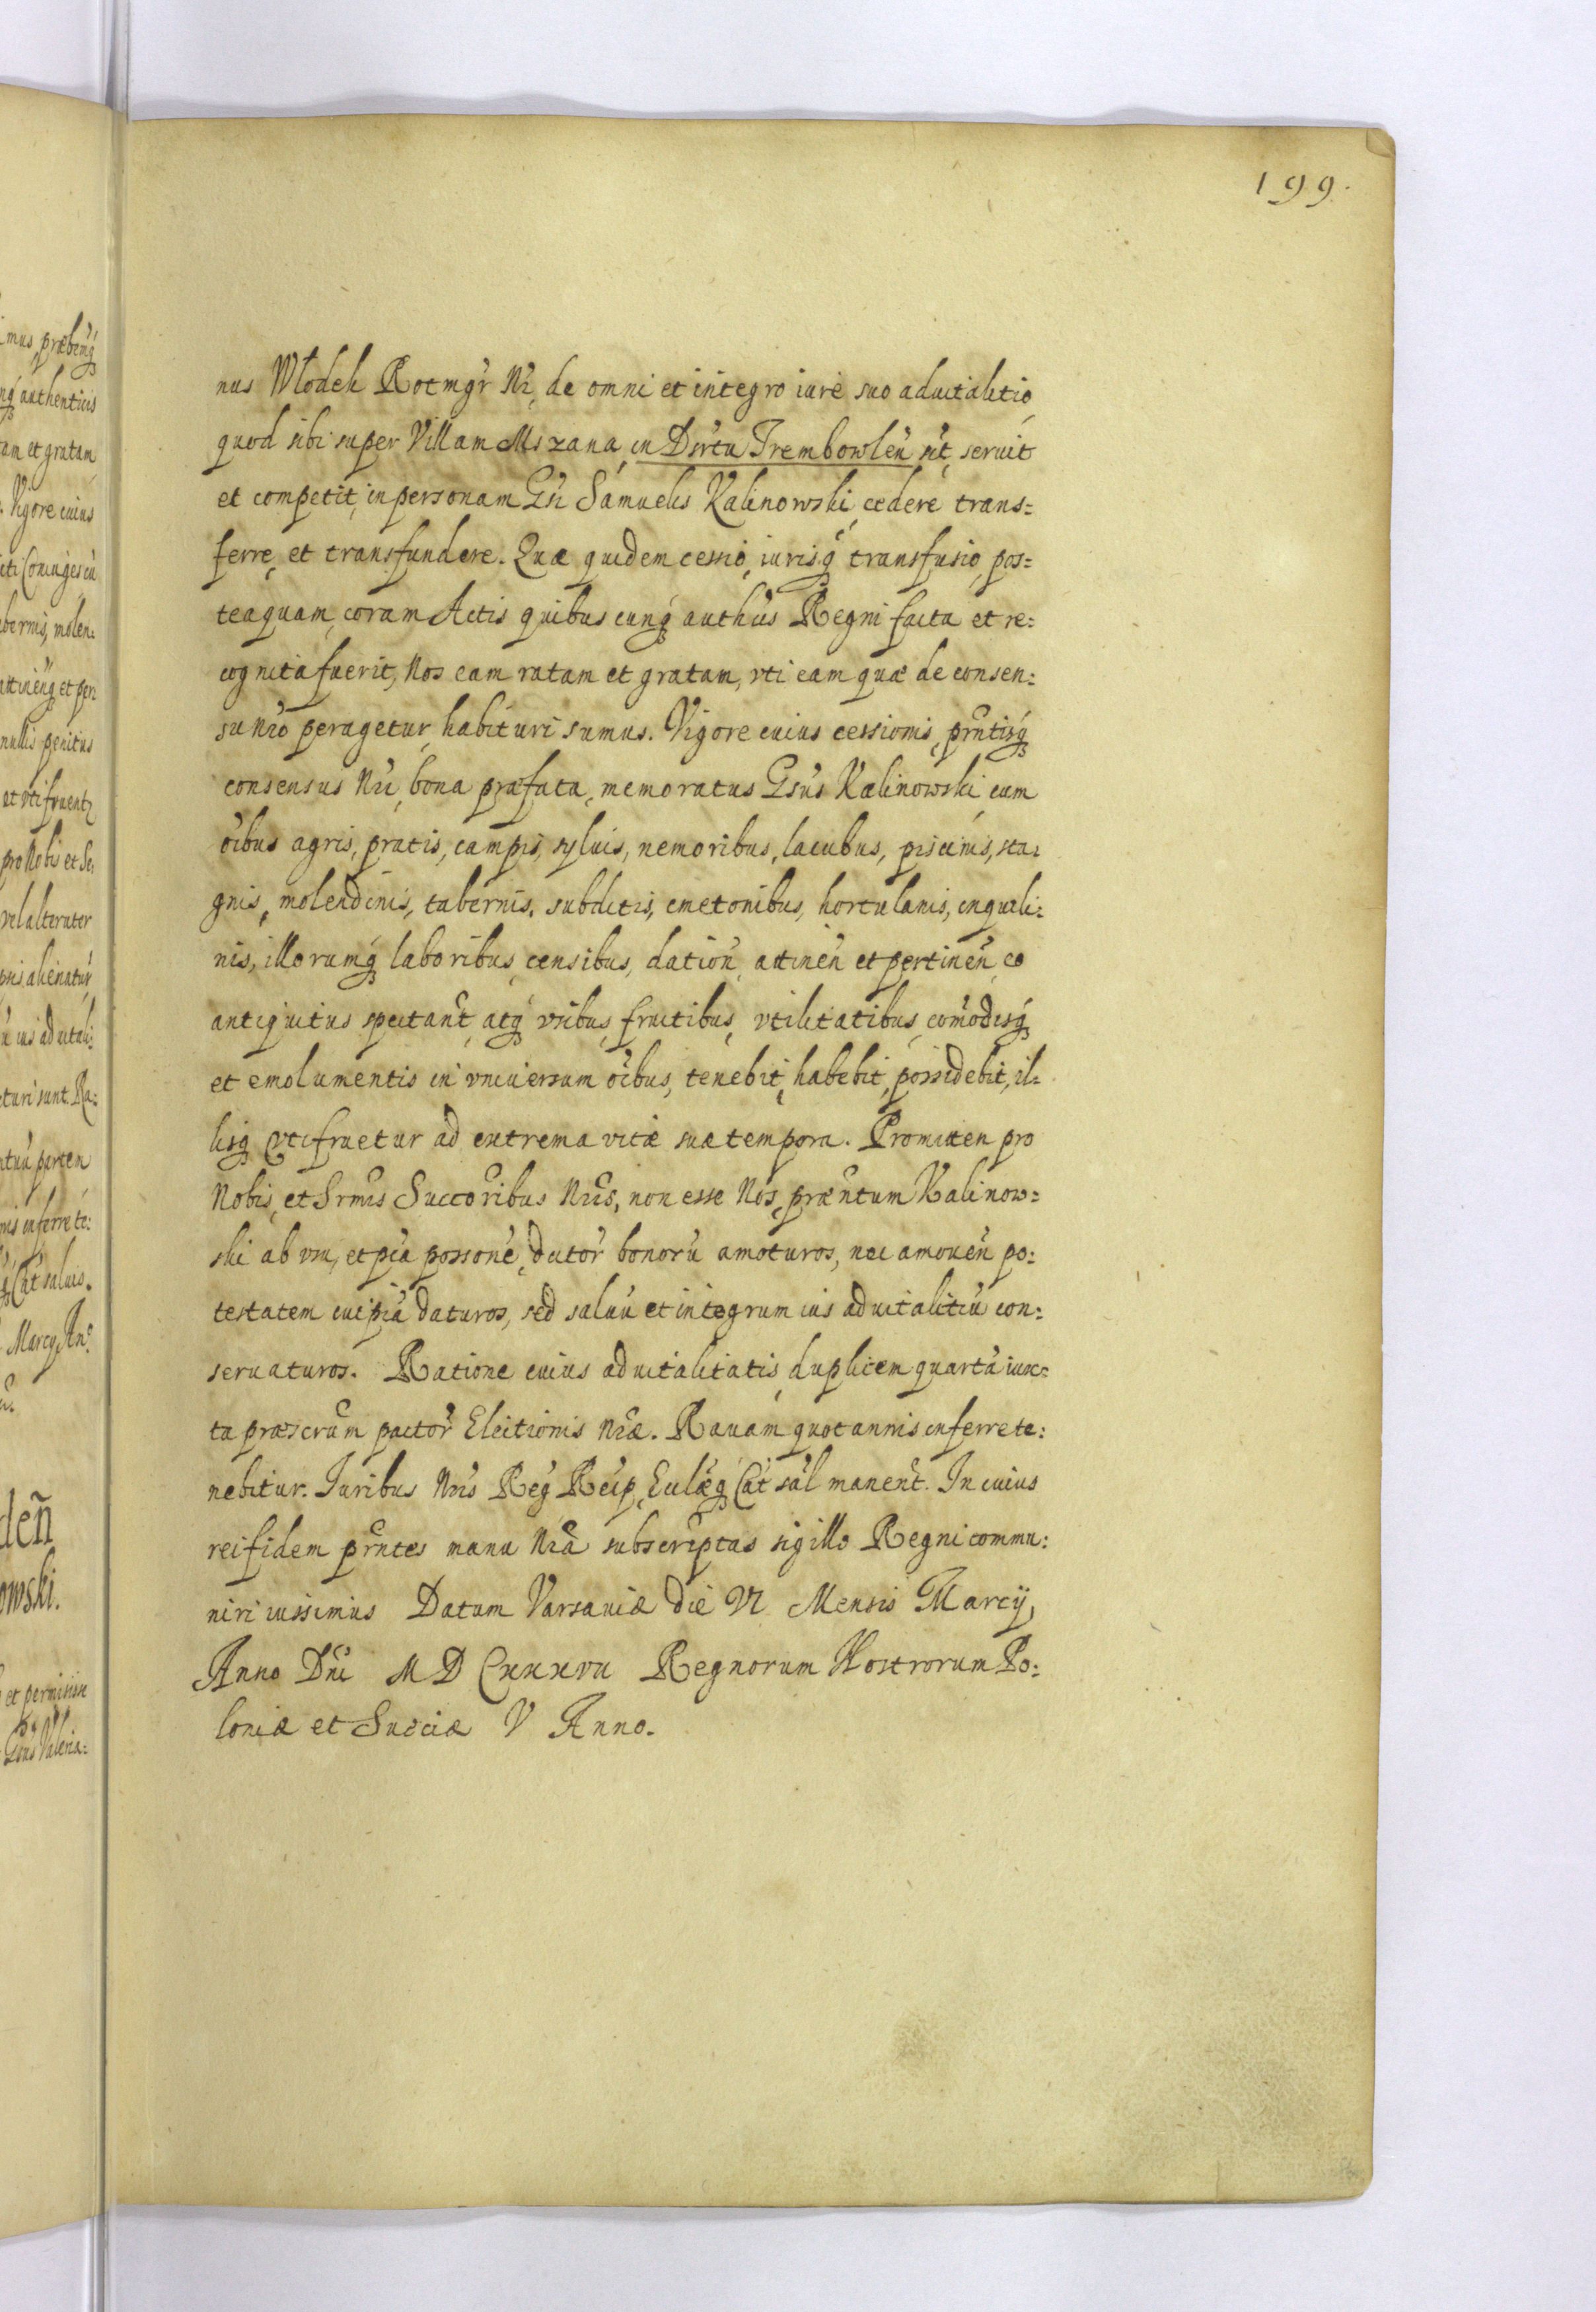 199.
nus Włodek Rotmgr Nr, de omni et integro iure suo aduitalitio
quod sibi super Villam Mszana, in Dśrtu Trembowlen̄ sit, seruit
et competit, in personam Gsi Samuelis Kalinowski, cedere trans=
ferre, et transfundere. Quæ quidem cessio, iurisq́ transfusio, pos=
teaquam, coram Actis quibuscunq́ authūs Regni facta et re:
cognita fuerit, Nos eam ratam et gratam, vti eam quæ de consen:
su nr̄o peragetur, habituri sumus. Vigore cuius cessionis, pn̄tisq́
consensus Nr̄i, bona præfata, memoratus Gsūs Kalinowski, cum
oībus agris, pratis, campis, syluis, nemoribus, lacubus, piscinis, sta:
gnis, molendinis, tabernis, subditis, cmetonibus, hortulanis, inquili:
nis, illorumq́ laboribus, censibus, dation̄, attinen̄ et pertinen̄, eo
antiquitus spectan̄t, atq́ vsibus, fructibus, vtilitatibus, com̄odisq́
et emolumentis in vniuersum oībus, tenebit, habebit, possidebit, il=
lisq́ vtifruetur ad extrema vitæ suæ tempora. Promitten pro
Nobis, et Srm̄is Succōribus Nr̄is, non esse Nos, præn̄tum Kalinow=
ski ab vsu, et pīa possōne, d̄ctor̄ bonorū amoturos, nec amouen̄ po:
testatem cuipiā daturos, sed saluū et integrum ius aduitalitiū con:
seruaturos. Ratione cuius aduitalitatis, duplicem quartā iux=
ta præscr̄um pactor̄ Electionis Nr̄æ. Rauam quotannis inferre te:
nebitur. Iuribus Nr̄is Reḡ Reip, Ecclæq́ Cat̄ sal̄ manen̄t. In cuius
rei fidem pn̄tes manu Nr̄a subscriptas sigillo Regni commu:
niri iussimus Datum Varsauiæ die VI Mensis Marcij,
Anno Dn̄i M D Cxxxvii Regnorum Nostrorum Po:
loniæ et Sueciæ V Anno.